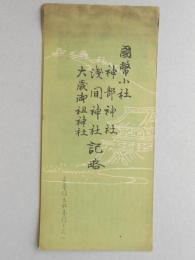 國幣小社
神部神社
淺間神社
大歳御祖神社
記略